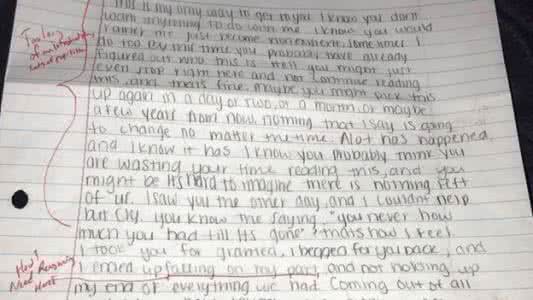 This is my only way to get to you I know you don't
want anything to do with me. I know you would
rather me just become nonexistent, sometimes I
do too. By this time you probably have already
figured out who this is. Hell you might just
even stop right here and not continue reading
this, and that's fine. maybe you might pick this
up again in a day or two, or a month, or maybe
a few years from now, nothing that I say is going
to change no matter the time. Alot has happened
and I know it has I know you probably think you
are wasting your time reading this, and you
might be Its hard to imagine there is nothing left
of "us". I saw you the other day, and I couldnt help
but cry. you know the saying, "you never how
much you had till its gone" thats how I feel.
I took you for granted, I begged for you back, and
I ended up falling on my part, and not holding up
my end of everything we had. Coming out of all
Need